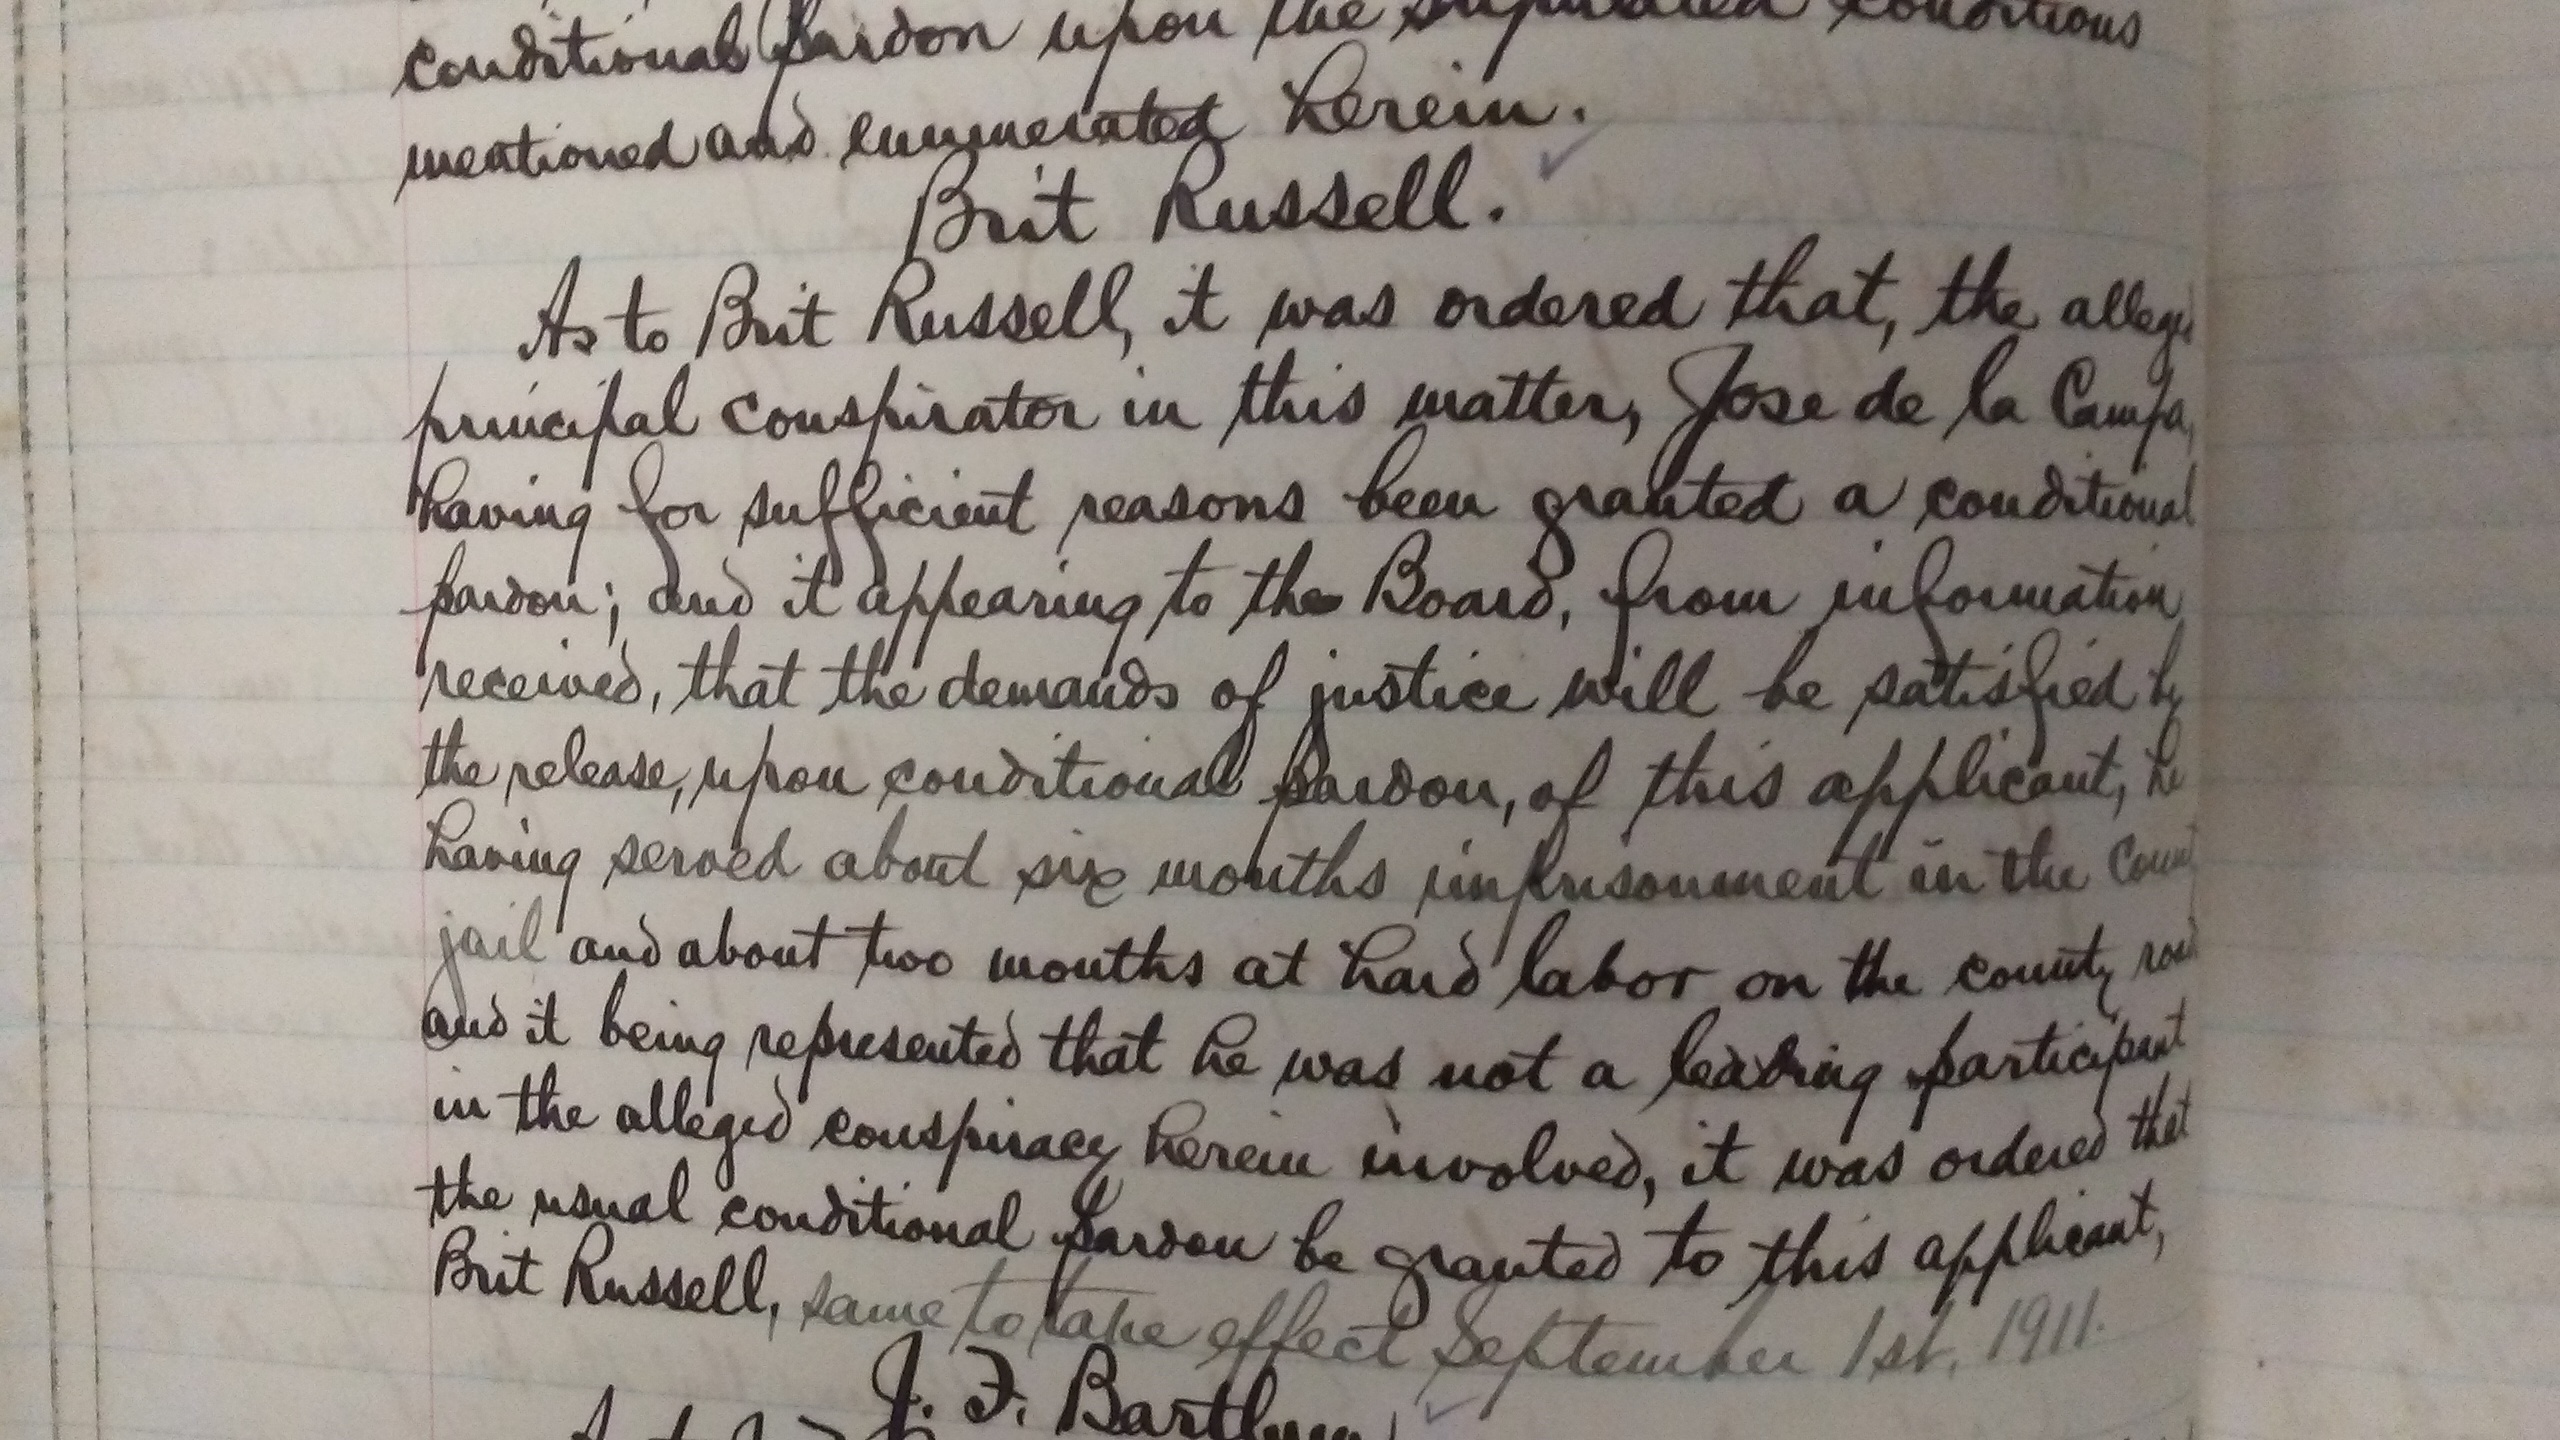 conditional pardon upon the stipulated conditions
mentioned and enumerated herein.
Brit Russell.
As to Brit Russell, it was ordered that, the alleged
principal conspirator in this matter, Jose de la Campa,
having for sufficient reasons been granted a conditional
pardon; and it appearing to the Board, from information
received, that the demands of justice will be satisfied by
the release, upon conditional pardon, of this applicant, he
having served about six months imprisonment in the
jail and about two months at hard labor on the county
and it being represented that he was not a leading participant
in the alleged conspiracy herein involved, it was ordered that
the usual conditional pardon be granted to this applicant,
Brit Russell, same to take effect September 1st, 1911.
J. F. Bartlum
As to J.